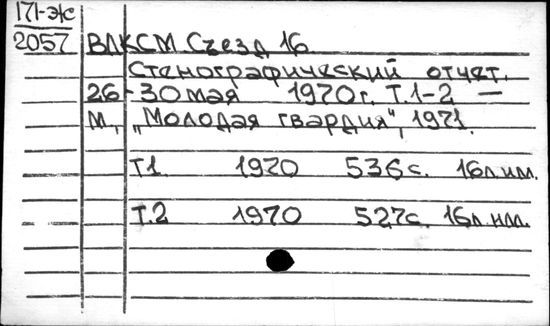 171-эк
2057
ВЛКСМ Съезд 16.
Стенографический отчет.
26-30 мая 1970г. Т.1-2 —
М., „Молодая гвардия", 1971.
Т1. 1970 536с. 16л.ил.
Т.2 1970 527с. 16л илл.